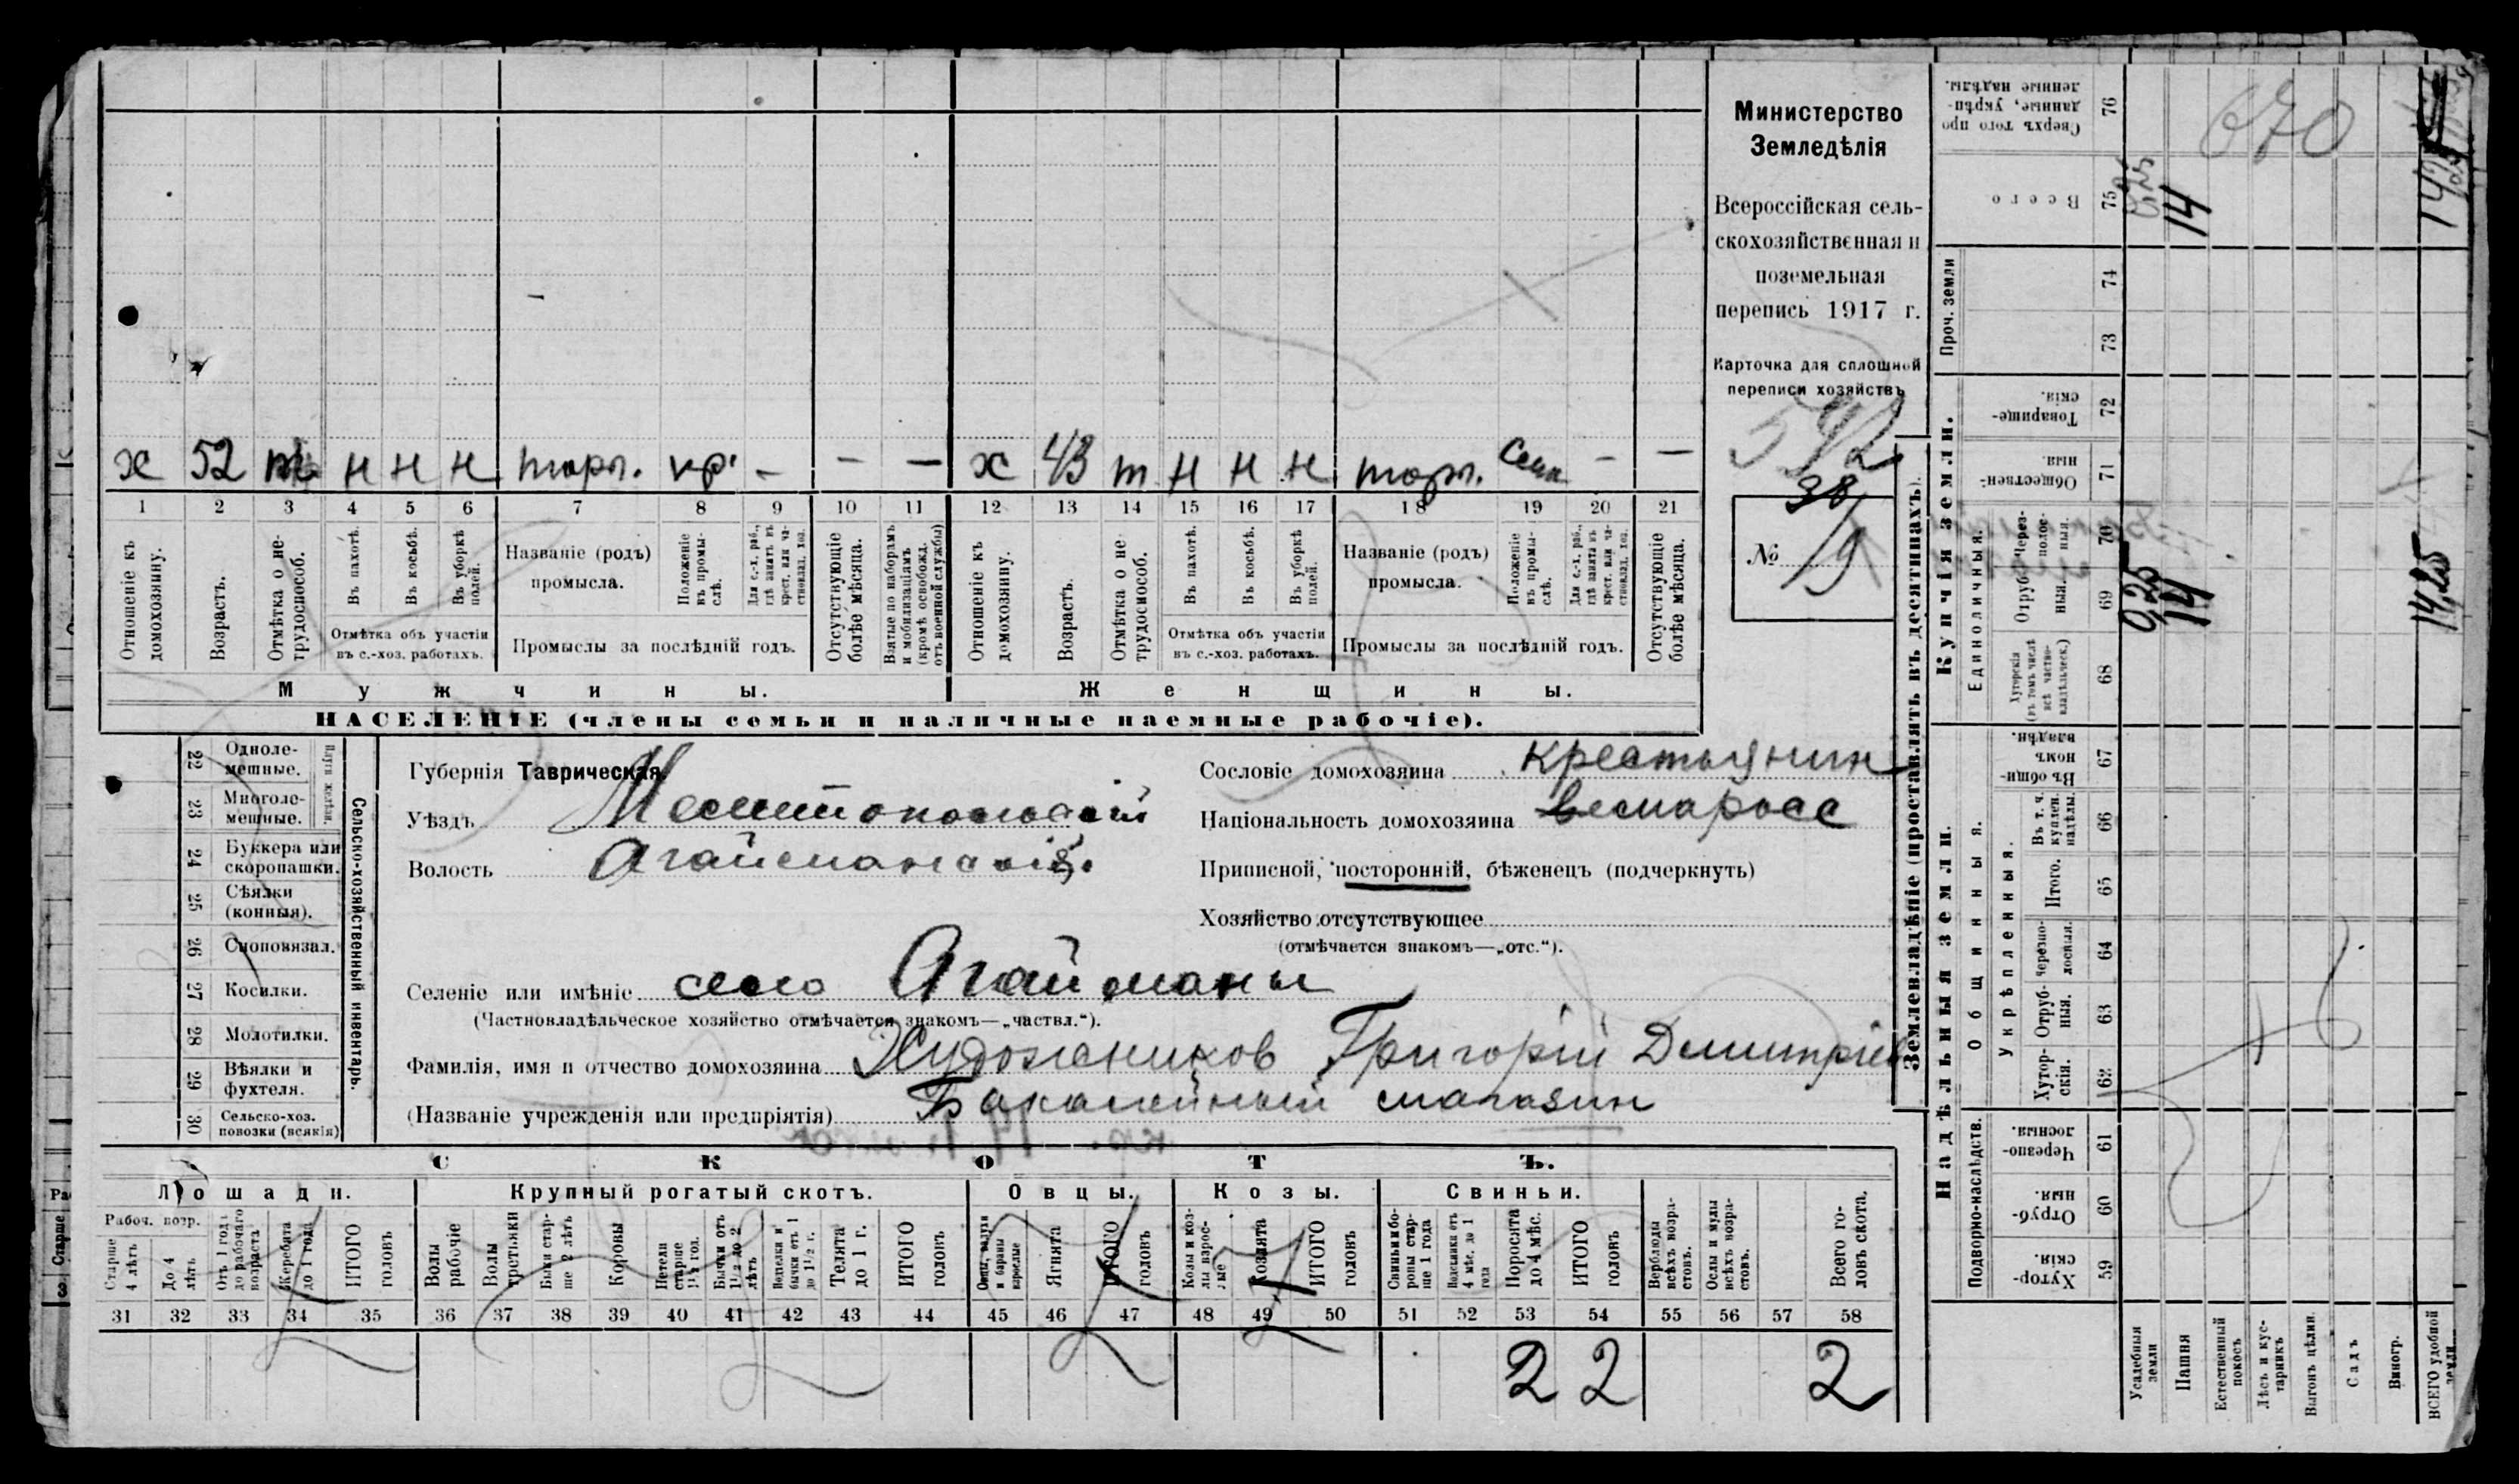 Министерство
Земледѣлія
Всероссійская сель-
скохозяйственная и
поземельная
перепись 1917 г.
Карточка для сплошной
переписи хозяйствъ
592
38
№ 19
х 52 н н н торг. – – – х 43 т н н н торг. – –
1 2 3 4 5 6 7 8 9 10 11 12 13 14 15 16 17 18 19 20 21
Отношеніе къ домохозяину.
Возрастъ.
Отмѣтка о не-трудоспособ.
Въ пахотѣ.
Въ косьбѣ.
Въ уборкѣ полей.
Отмѣтка объ участіи
въ с.-хоз. работахъ.
Названіе (родъ)
промысла.
Положеніе въ промы-слѣ.
Для с.-х. раб., гдѣ занятъ въ крест. или ча-стновлад. хоз.
Промыслы за послѣдній годъ.
Отсутствующіе болѣе мѣсяца.
Взятые по наборамъ и мобилизаціямъ (кромѣ освобожд. отъ военной службы)
Отношеніе къ домохозяину.
Возрастъ.
Отмѣтка о не-трудоспособ.
Въ пахотѣ.
Въ косьбѣ.
Въ уборкѣ полей.
Отмѣтка объ участіи
въ с.-хоз. работахъ.
Названіе (родъ)
промысла.
Положеніе въ промы-слѣ.
Для с.-х. раб., гдѣ занята въ крест. или ча-стновлад. хоз.
Промыслы за послѣдній годъ.
Отсутствующіе болѣе мѣсяца.
Мужчины. Женщины.
НАСЕЛЕНІЕ (члены семьи и наличные наемные рабочіе).
Сельско-хозяйственный инвентарь.
Плуги желѣзн.
22 Одноле-мешные.
23 Многоле-мешные.
24 Буккера или скоропашки.
25 Сѣялки (конныя).
26 Сноповязал.
27 Косилки.
28 Молотилки.
29 Вѣялки и фухтеля.
30 Сельско-хоз. повозки (всякія)
Губернія Таврическая.
Уѣздъ Мелитопольскій
Волость Агайманская.
Сословіе домохозяина крестьянин
Національность домохозяина великаросс
Приписной, посторонній, бѣженецъ (подчеркнуть)
Хозяйство отсутствующее
(отмѣчается знакомъ—„отс.“).
Селеніе или имѣніе село Агайманы
(Частновладѣльческое хозяйство отмѣчается знакомъ—„частвл.“).
Фамилія, имя и отчество домохозяина Художников Григорій Димитріев
(Названіе учрежденія или предпріятія) Бакалейный магазин
СКОТЪ.
Лошади. Крупный рогатый скотъ. Овцы. Козы. Свиньи.
Рабоч. возр.
Старше 4 лѣтъ
До 4 лѣтъ
Отъ 1 года до рабочаго возраста
Жеребята до 1 года
ИТОГО головъ
Волы рабочіе
Волы третьяки
Быки стар-ше 2 лѣтъ
Коровы
Нетели старше 1½ год.
Бычки отъ 1½ до 2 лѣтъ
Телята до 1 г.
ИТОГО головъ
Ягнята
ИТОГО головъ
Козы и коз-лы взрос-лые
Козлята
ИТОГО головъ
Свиньи и бо-ровы стар-ше 1 года
Подсвинки отъ 4 мѣс. до 1 года
Поросята до 4 мѣс.
ИТОГО головъ
Верблюды всѣхъ возра-стовъ.
Ослы и мулы всѣхъ возра-стовъ.
Всего го-ловъ скота.
31 32 33 34 35 36 37 38 39 40 41 42 43 44 45 46 47 48 49 50 51 52 53 54 55 56 57 58
2 2 2
Землевладѣніе (проставлять въ десятинахъ).
Купчія земли.
Надѣльныя земли.
Сверхъ того про-данные, укрѣп-ленные надѣлы. 76
Всего 75
Проч. земли 74 73
Товарище-скія. 72
Обществен-ныя. 71
Единоличныя.
Через-полос-ныя. 70
Отруб-ныя. 69
Хуторскія (въ томъ числѣ всѣ частно-владѣльческ.) 68
Общинныя.
Въ общи-номъ владѣн. 67
Укрѣпленныя.
Въ т. ч. куплен. надѣлы. 66
Итого. 65
Черезпо-лосныя. 64
Отруб-ныя. 63
Хутор-скія. 62
Подворно-наслѣдств.
Черезпо-лосныя. 61
Отруб-ныя. 60
Хутор-скія. 59
Усадебныя земли
Пашня
Естественный покосъ
Лѣсъ и кус-тарникъ
Выгонъ цѣлин.
Садъ
Виногр.
ВСЕГО удобной земли
670
14
0,25
14
14,25